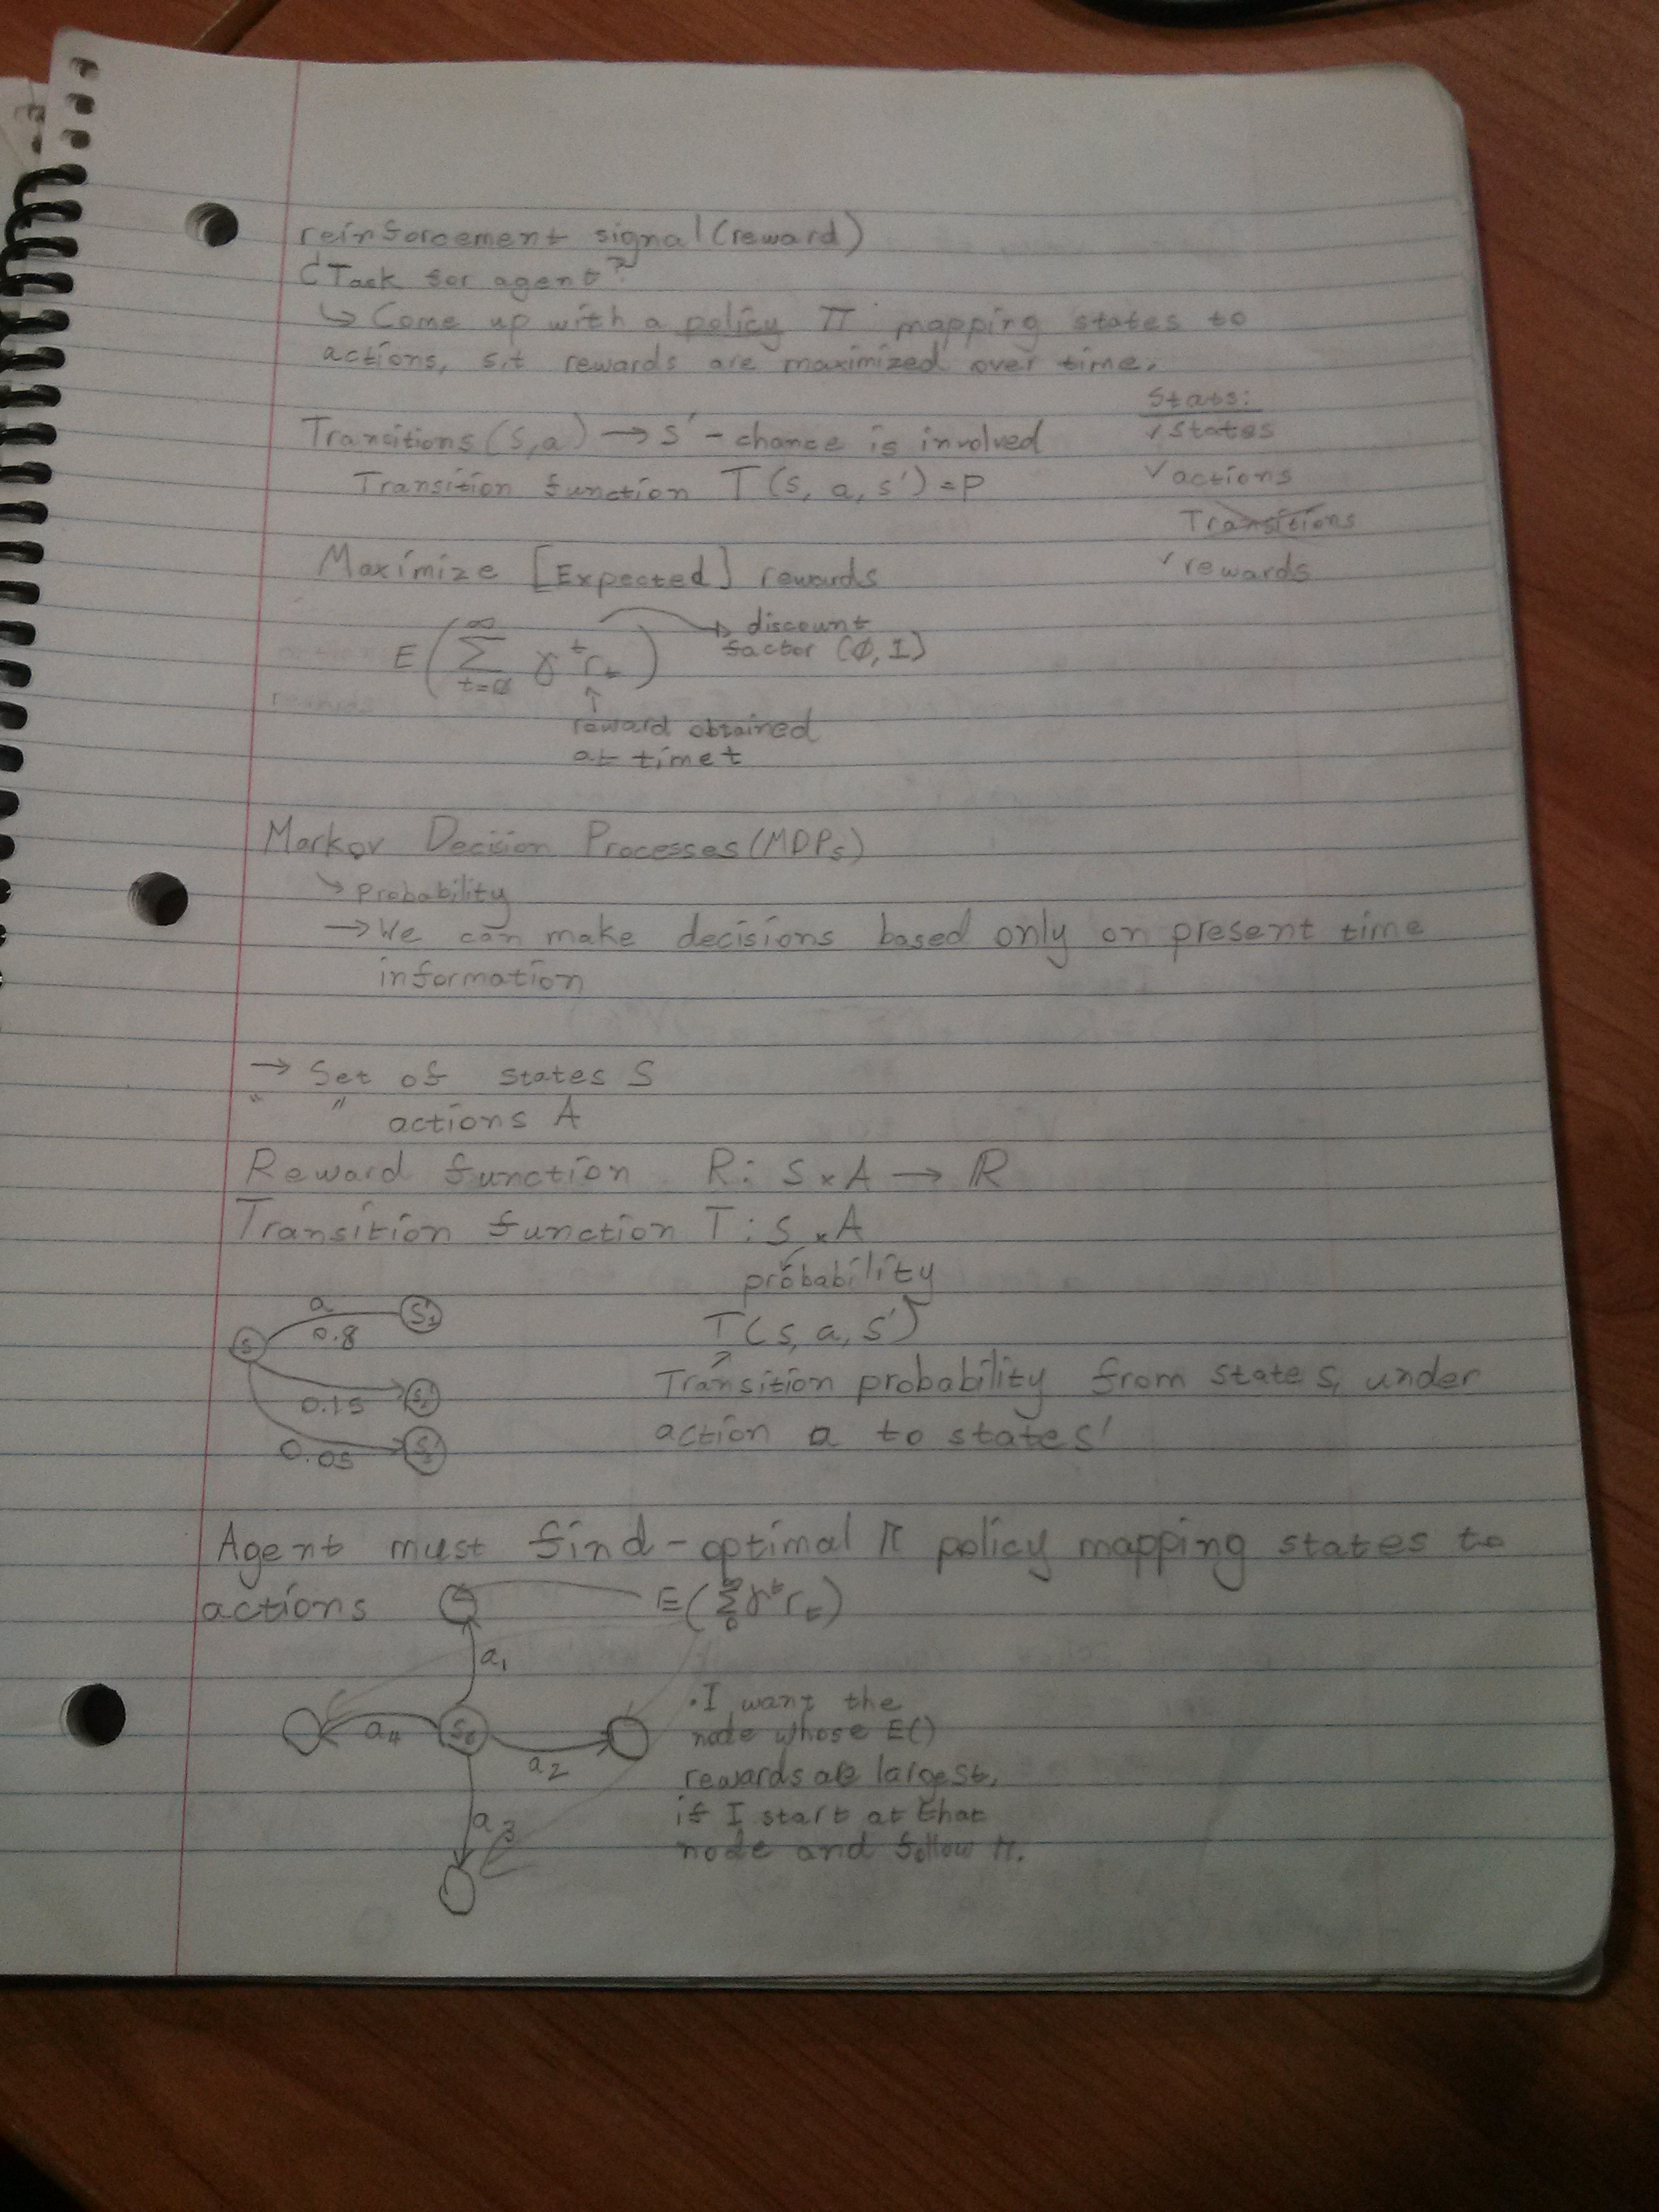 reinforcement signal (reward)
Task for agent?
↳ Come up with a policy π mapping states to
actions, s.t rewards are maximized over time.
Stats:
Transitions (s,a) → s' - chance is involved
✓ states
Transition function T(s, a, s') = P
✓ actions
Transitions
Maximize [Expected] rewards
✓ rewards
discount
factor (0, 1)
E(∑ t=0 ∞ γ^t r_t)
↑
reward obtained
at time t
Markov Decision Processes (MDPs)
↘ probability
→ We can make decisions based only on present time
information
→ Set of states S
" " actions A
Reward function R: S × A → ℝ
Transition function T: S × A
probability
a S'1
0.8
T(s, a, s')
S
Transition probability from state s, under
0.15
action a to state s'
0.05
Agent must find - optimal π policy mapping states to
actions E(∑ 0 ∞ γ^t r_t)
a1
· I want the
a4 S0
node whose E()
a2
rewards are largest,
if I start at that
a3
node and follow π.